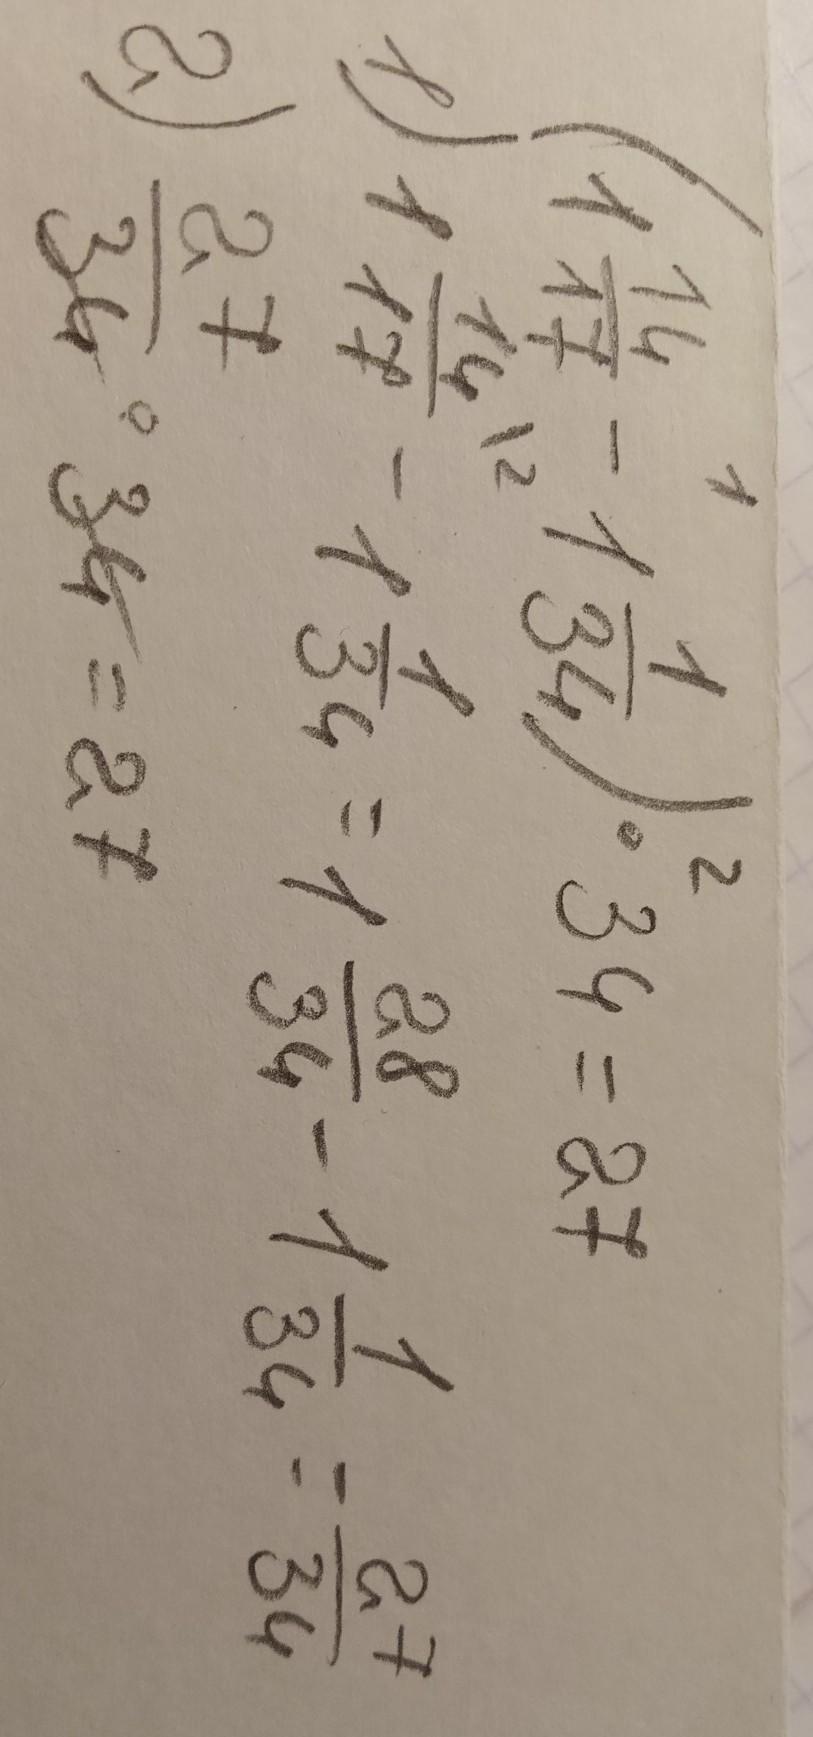 (1 14/17 - 1 1/34) · 34 = 27
1) 1 14/17 \2 - 1 1/34 = 1 28/34 - 1 1/34 = 27/34
2) 27/34 · 34 = 27